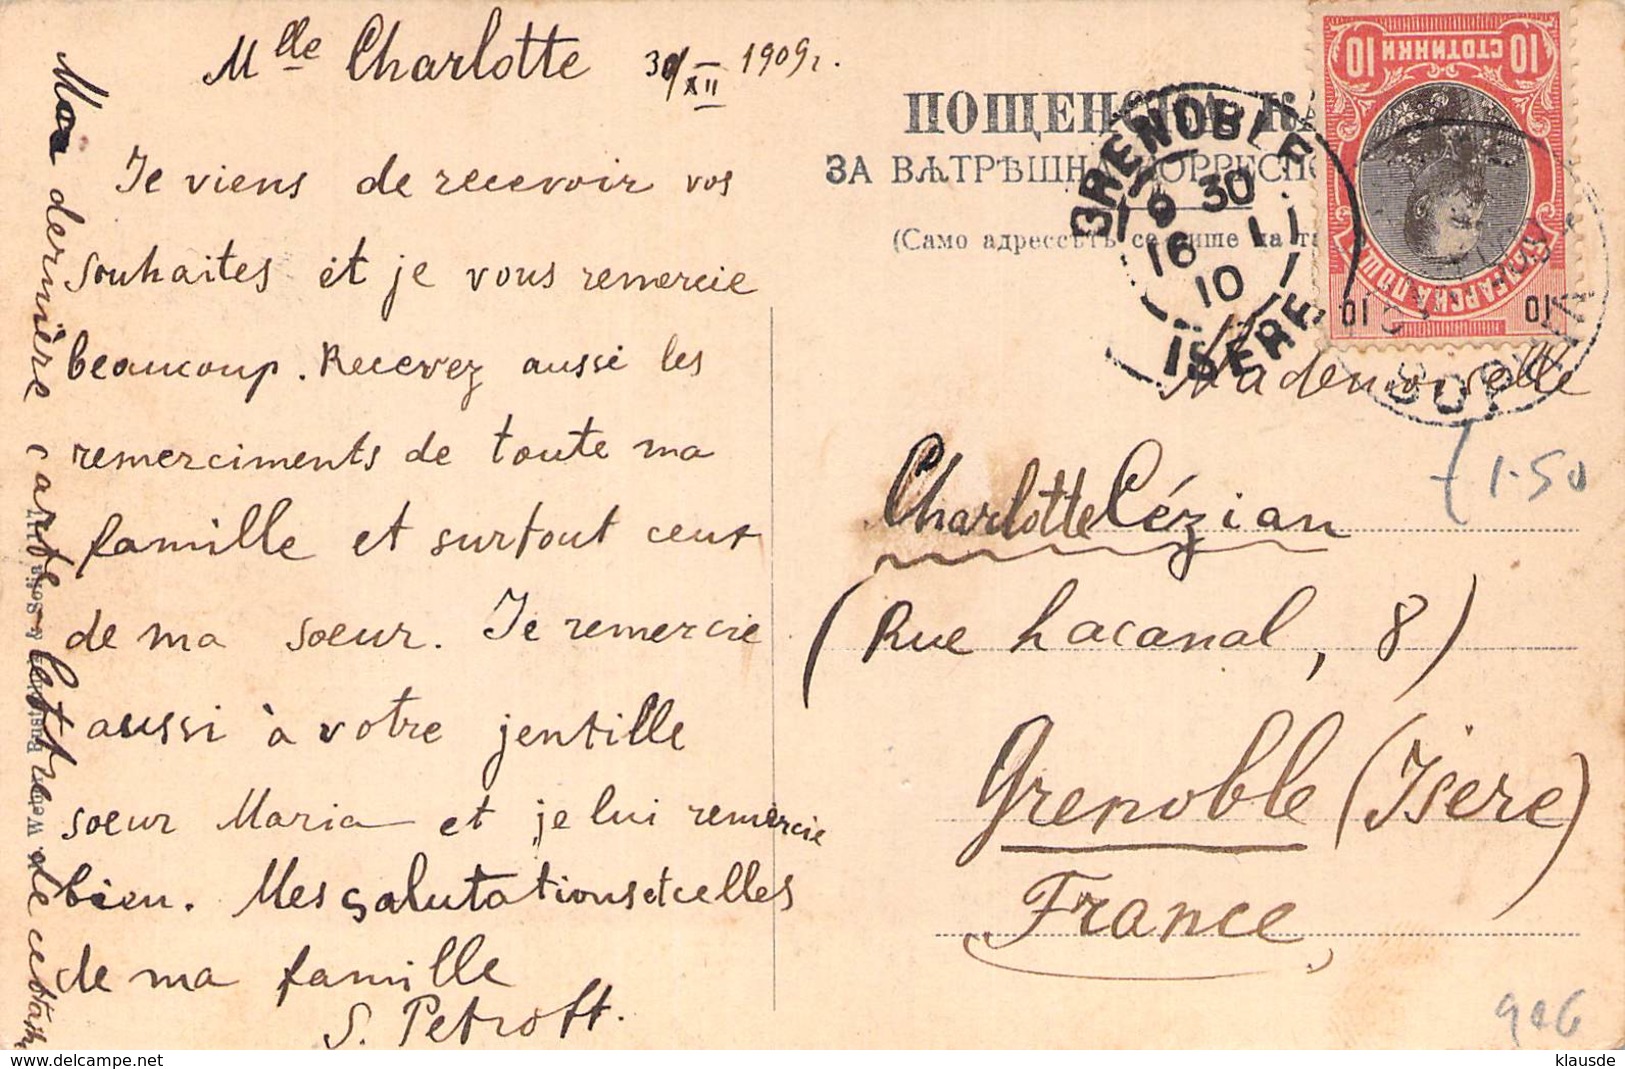 Mlle Charlotte 30/XII 1909 г.
Je viens de recevoir vos
souhaites et je vous remercie
beaucoup. Recevez aussi les
remerciments de toute ma
famille et surtout ceux
de ma soeur. Je remercie
aussi à votre jentille
soeur Maria et je lui remercie
bien. Mes salutations et celles
de ma famille
S. Petroff.
Mon dernière carte-lettre de
ПОЩЕНСКА
ЗА ВѪТРѢШН КОРРЕСПО
(Само адрессътъ се пише на
GRENOBLE
9 30
16 1
10
ISERE
10 СТОТИНКИ 10
10 10
СОФИЯ
Mademoiselle
Charlotte Cézian
(Rue Lacanal, 8)
Grenoble (Isere)
France
1.50
906
klausde
delcampe.net